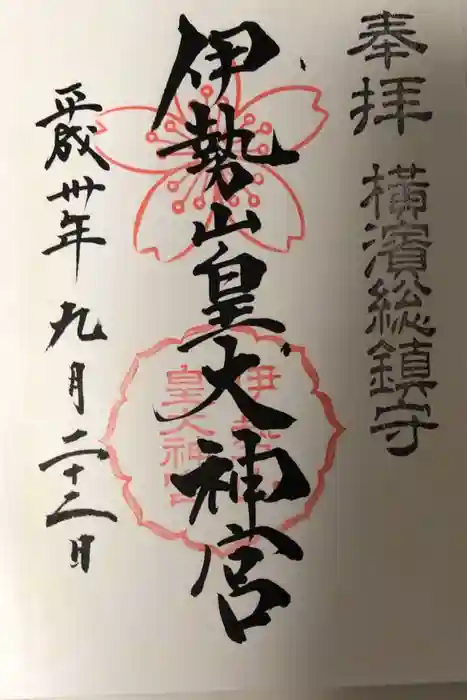 奉拝 横濱総鎮守
伊勢山皇大神宮
平成卅年九月二十三日
伊勢山
皇大神宮